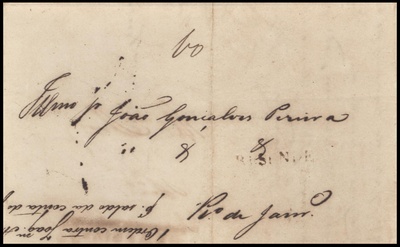 60
Illmo Sr João Gonçalves Pereira
" & &
RESENDE
Rio de Janro.
1 Ordem contra Joaq.m
P. saldo da conta de